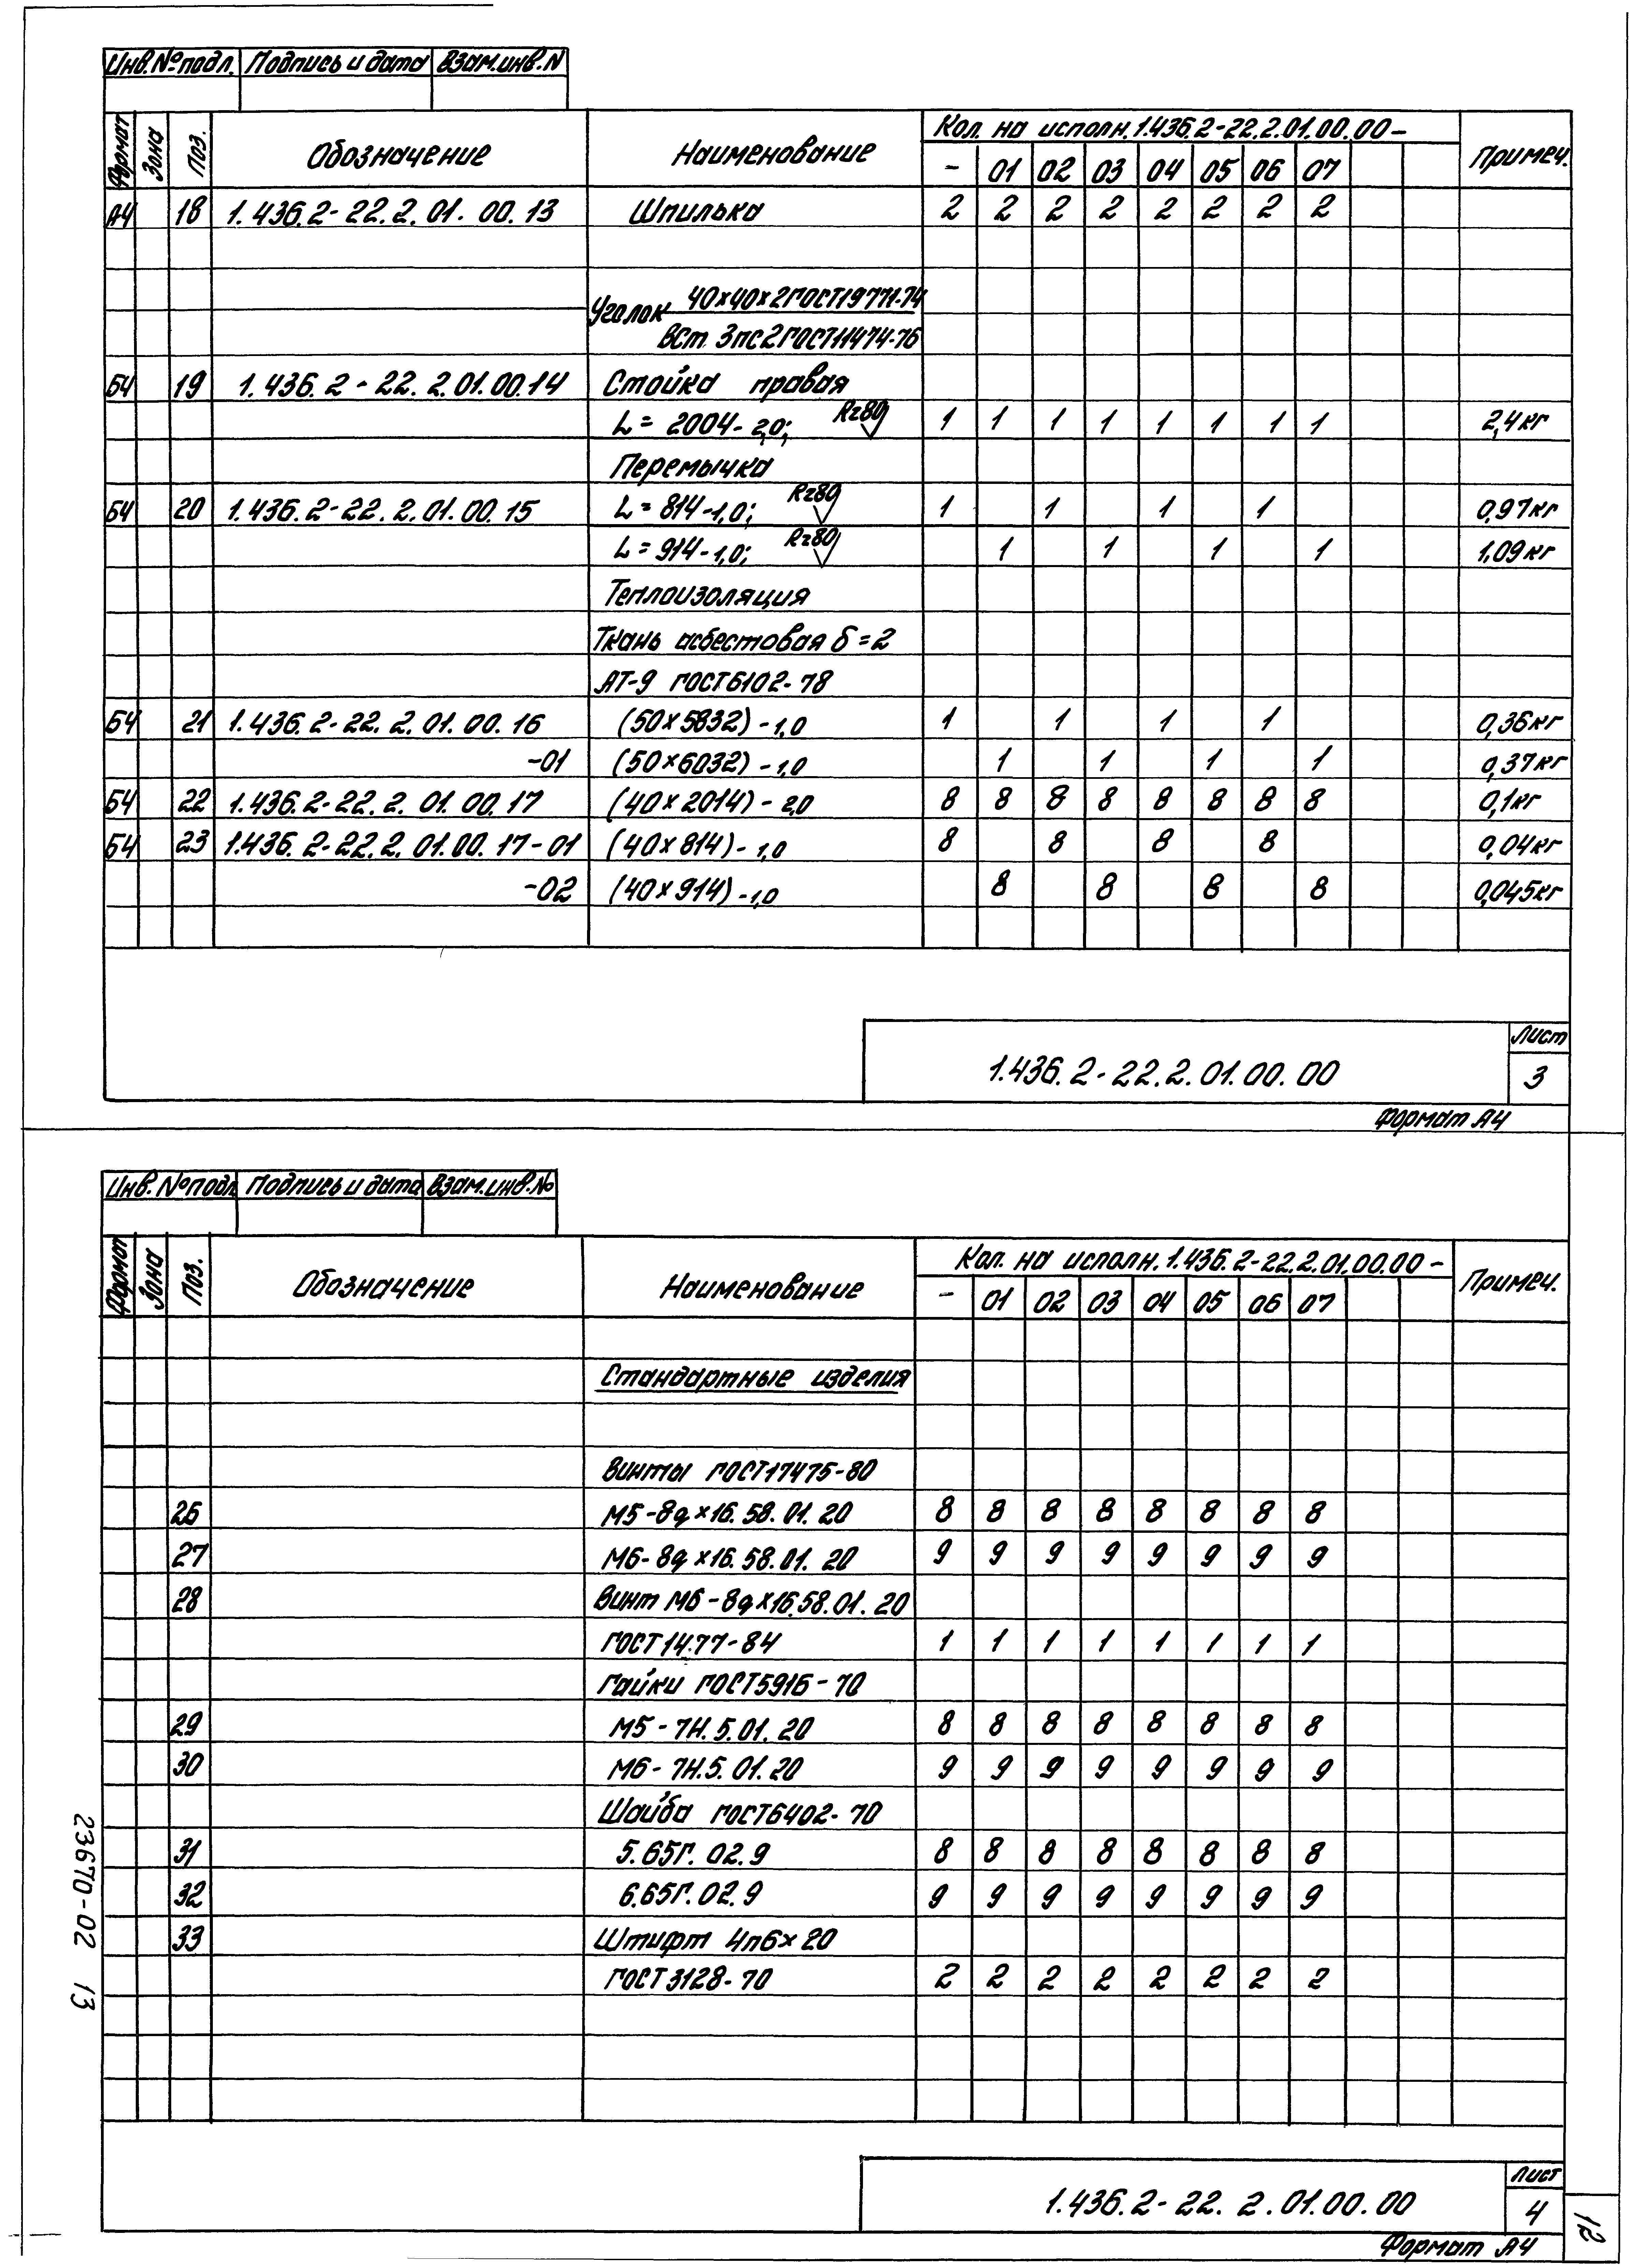 Инв.№подл. Подпись и дата Взам.инв.N
Формат Зона Поз. Обозначение Наименование Кол. на исполн. 1.436.2-22.2.01.00.00- Примеч.
- 01 02 03 04 05 06 07
А4 18 1.436.2-22.2.01.00.13 Шпилька 2 2 2 2 2 2 2 2
Уголок 40х40х2ГОСТ19771-74
ВСт 3пс2ГОСТ11474-76
БЧ 19 1.436.2-22.2.01.00.14 Стойка правая
L=2004-2,0; Rz80 1 1 1 1 1 1 1 1 2,4кг
Перемычка
БЧ 20 1.436.2-22.2.01.00.15 L=814-1,0; Rz80 1 1 1 1 0,97кг
L=914-1,0; Rz80 1 1 1 1 1,09кг
Теплоизоляция
Ткань асбестовая δ=2
АТ-9 ГОСТ6102-78
БЧ 21 1.436.2-22.2.01.00.16 (50х5832)-1,0 1 1 1 1 0,36кг
-01 (50х6032)-1,0 1 1 1 1 0,37кг
БЧ 22 1.436.2-22.2.01.00.17 (40х2014)-2,0 8 8 8 8 8 8 8 8 0,1кг
БЧ 23 1.436.2-22.2.01.00.17-01 (40х814)-1,0 8 8 8 8 0,04кг
-02 (40х914)-1,0 8 8 8 8 0,045кг
1.436.2-22.2.01.00.00 Лист
3
Формат А4
Инв.№подл Подпись и дата Взам.инв.№
Формат Зона Поз. Обозначение Наименование Кол. на исполн. 1.436.2-22.2.01.00.00- Примеч.
- 01 02 03 04 05 06 07
Стандартные изделия
Винты ГОСТ17475-80
26 М5-8gх16.58.01.20 8 8 8 8 8 8 8 8
27 М6-8gх16.58.01.20 9 9 9 9 9 9 9 9
28 Винт М6-8gх16.58.01.20
ГОСТ14.77-84 1 1 1 1 1 1 1 1
Гайки ГОСТ5916-70
29 М5-7Н.5.01.20 8 8 8 8 8 8 8 8
30 М6-7Н.5.01.20 9 9 9 9 9 9 9 9
Шайба ГОСТ6402-70
31 5.65Г.02.9 8 8 8 8 8 8 8 8
32 6.65Г.02.9 9 9 9 9 9 9 9 9
33 Штифт 4п6х20
ГОСТ3128-70 2 2 2 2 2 2 2 2
23670-02 13
1.436.2-22.2.01.00.00 Лист
4
12
Формат А4